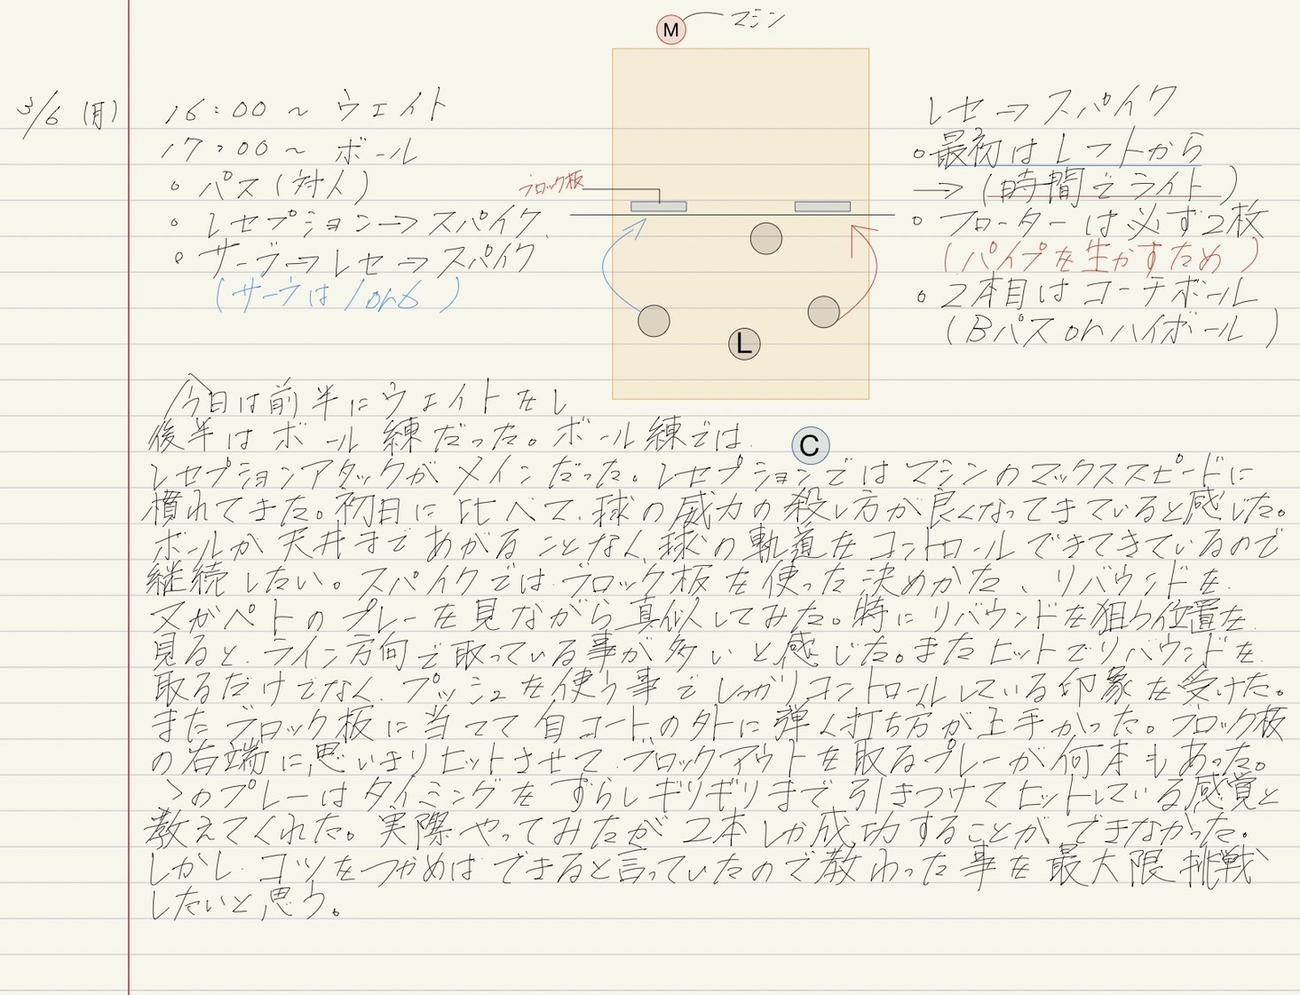 M マシン
3/6 (月)
16:00 〜 ウェイト
17:00 〜 ボール
◦ パス(対人)
◦ レセプション→スパイク
◦ サーブ→レセ→スパイク
(サーブは 1 or 6 )
ブロック板
L
C
レセ→スパイク
◦最初はレフトから
→(時間でライト)
◦ フローターは必ず2枚
(パイプを生かすため)
◦ 2本目はコーチボール
(Bパス or ハイボール)
今日は前半にウェイトをし
後半はボール練だった。ボール練では
レセプションアタックがメインだった。レセプションではマシンのマックススピードに
慣れてきた。初日に比べて、球の威力の殺し方が良くなってきていると感じた。
ボールが天井まであがることなく球の軌道をコントロールできてきているので
継続したい。スパイクではブロック板を使った決めかた、リバウンドを
ヌガペトのプレーを見ながら真似してみた。特にリバウンドを狙う位置を
見ると、ライン方向で取っている事が多いと感じた。またヒットでリバウンドを
取るだけでなく、プッシュを使う事でしっかりコントロールしている印象を受けた。
またブロック板に当てて自コートの外に弾く打ち方が上手かった。ブロック板
の右端に思いきりヒットさせてブロックアウトを取るプレーが何本もあった。
このプレーはタイミングをずらしギリギリまで引きつけてヒットしている感覚と
教えてくれた。実際やってみたが2本しか成功することができなかった。
しかし、コツをつかめばできると言っていたので教わった事を最大限挑戦
したいと思う。